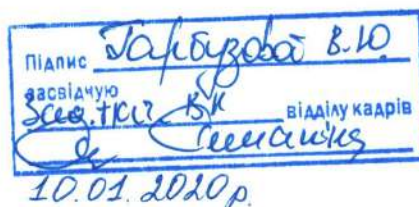 Підпис Гарбузової В.Ю
засвідчую
Зав. ВК відділу кадрів
10.01.2020р.